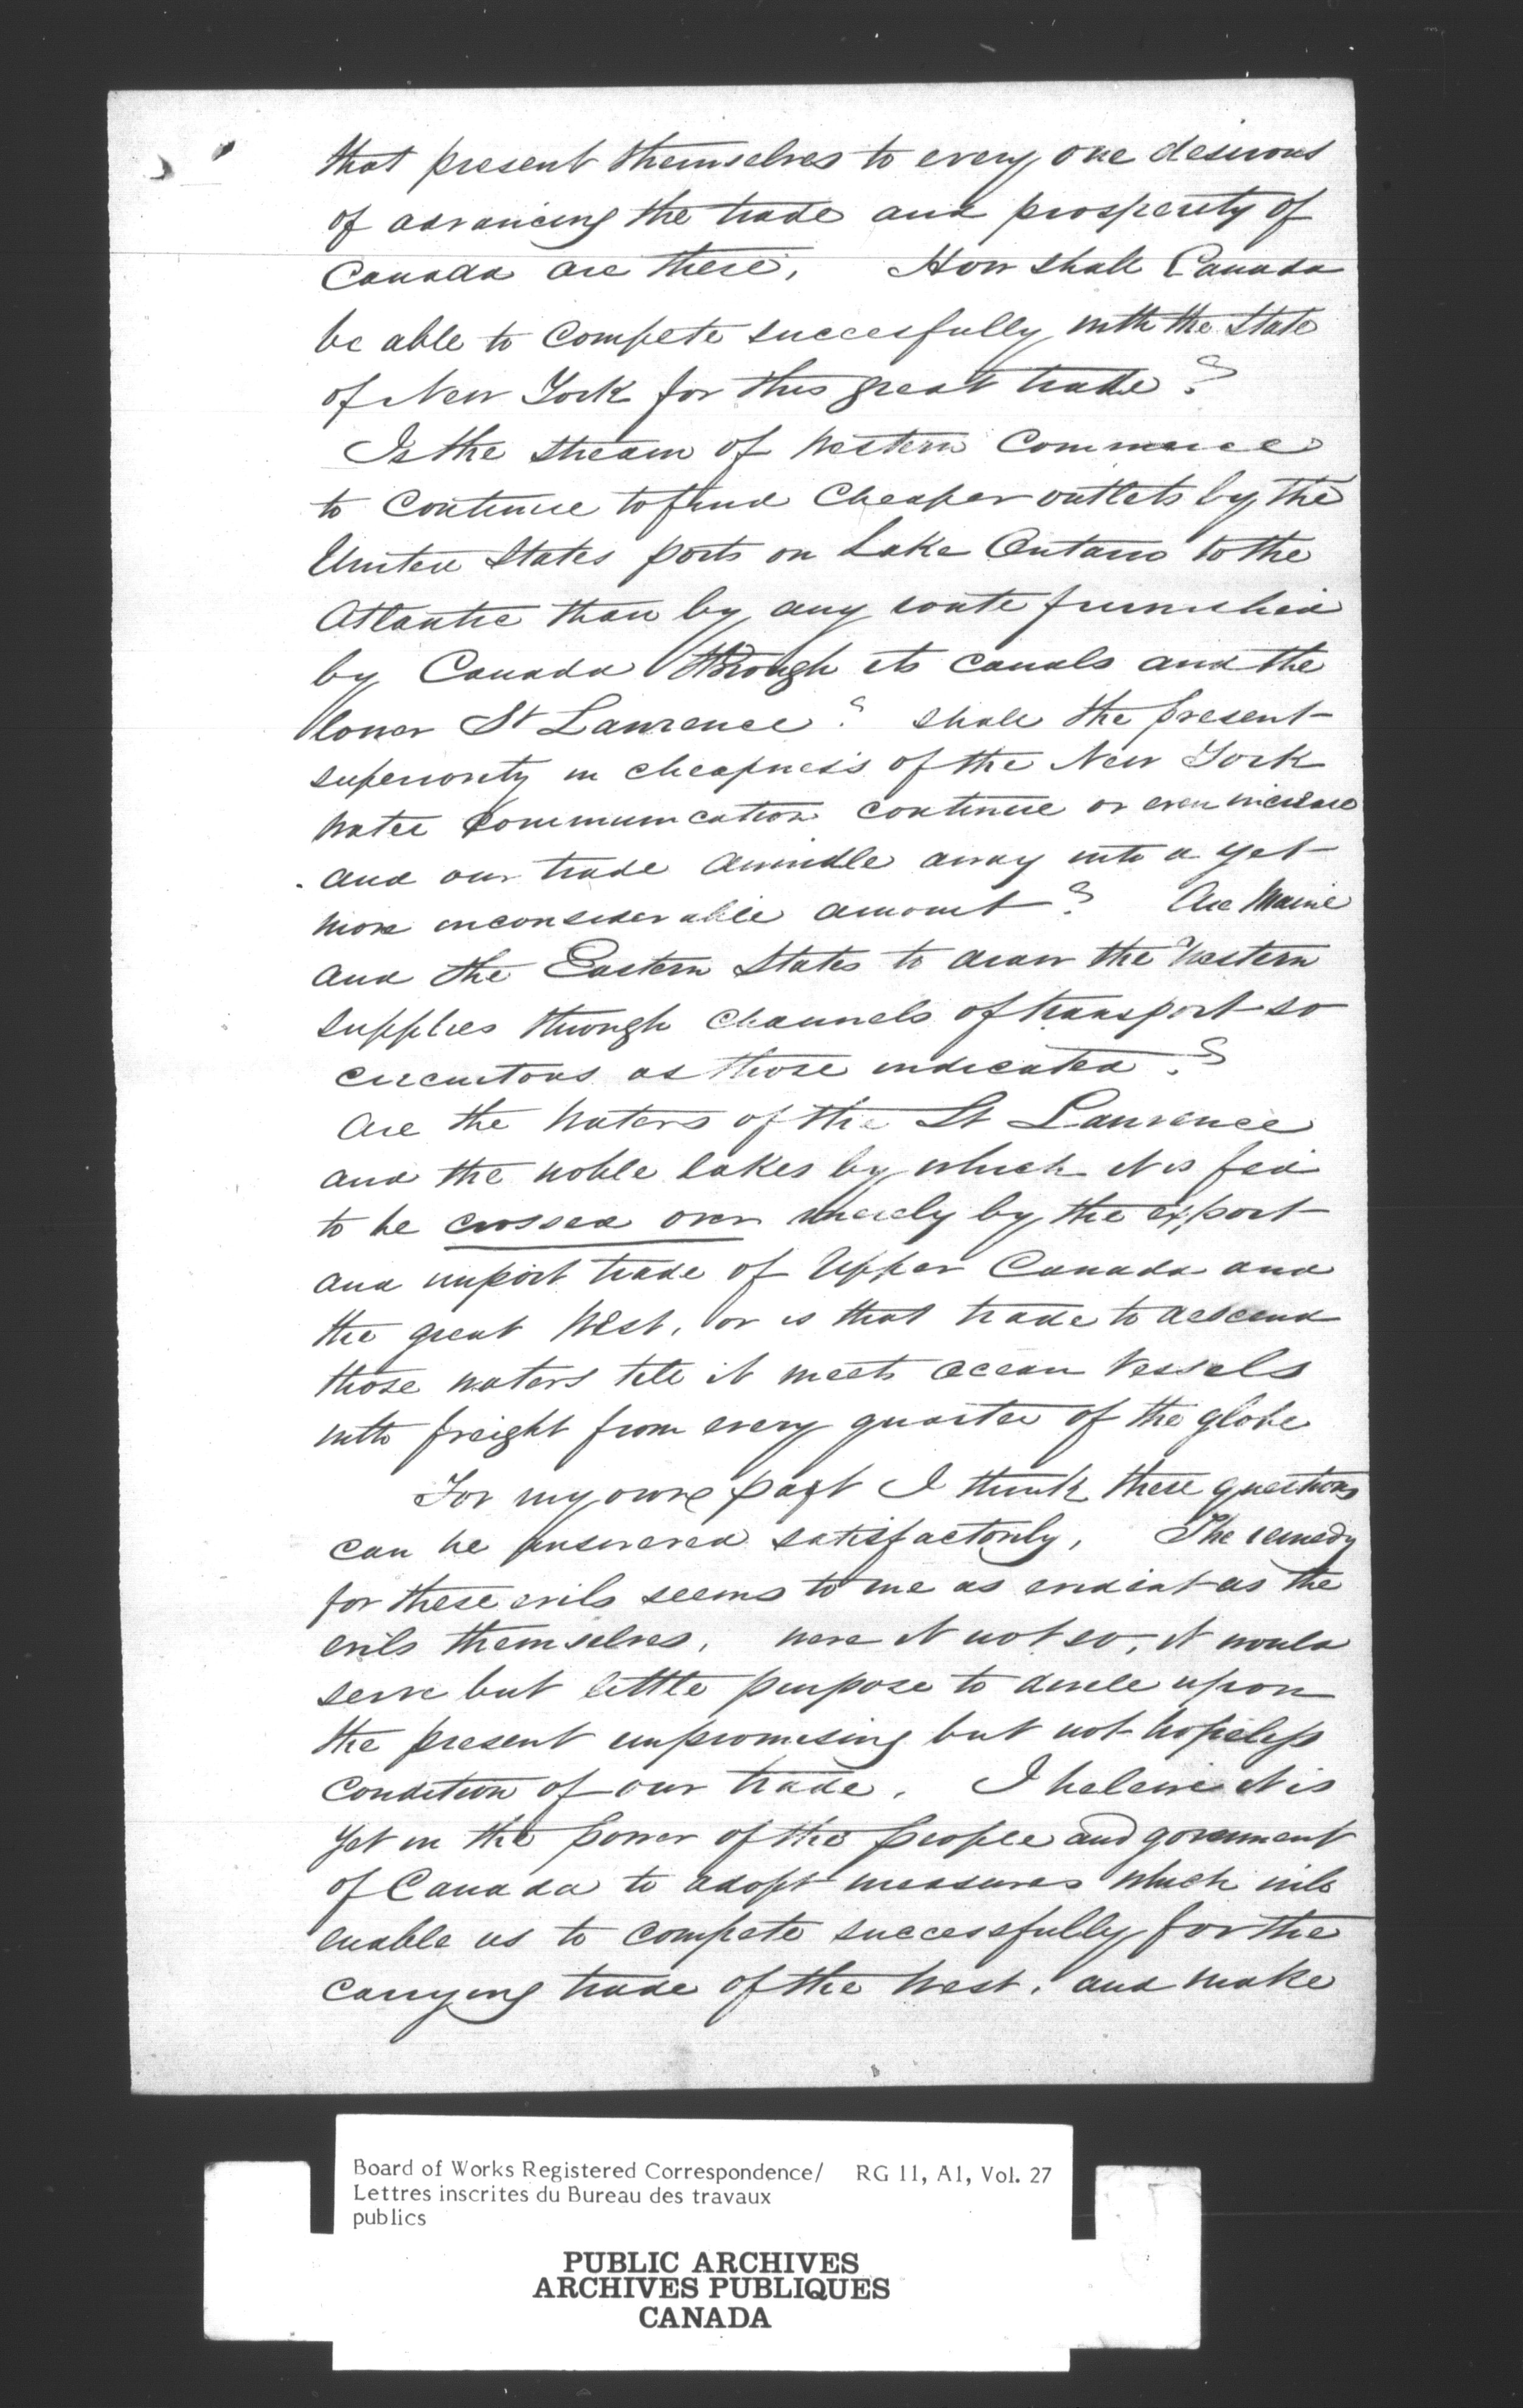 that present themselves to every one desirous
of advancing the trade and prosperity of
Canada are these, How shall Canada
be able to compete succesfully with the State
of New York for this great trade?
Is the stream of Western Commerce
to continue to find Cheaper outlets by the
United States ports on Lake Ontario to the
Atlantic than by any route furnished
by Canada through its canals and the
lower St Lawrence? shall the present
superiority in cheapness of the New York
water communication continue or even increase
and our trade dwindle away into a yet
more inconsiderable amount? Are Maine
and the Eastern States to draw the Western
supplies through channels of transport so
circuitous as those indicated?
Are the Waters of the St Lawrence
and the noble lakes by which it is fed
to be crossed over merely by the export
and import trade of Upper Canada and
the great West, or is that trade to descend
those waters till it meets ocean Vessels
with freight from every quarter of the globe
For my own part I think these questions
can be answered satisfactorily, The remedy
for these evils seems to me as evident as the
evils themselves, were it not so, it would
serve but little purpose to dwell upon
the present unpromising but not hopeless
condition of our trade. I beleive it is
yet in the power of the people and government
of Canada to adopt measures which will
enable us to compete successfully for the
carrying trade of the West, and make
Board of Works Registered Correspondence/ RG 11, A1, Vol. 27
Lettres inscrites du Bureau des travaux
publics
PUBLIC ARCHIVES
ARCHIVES PUBLIQUES
CANADA